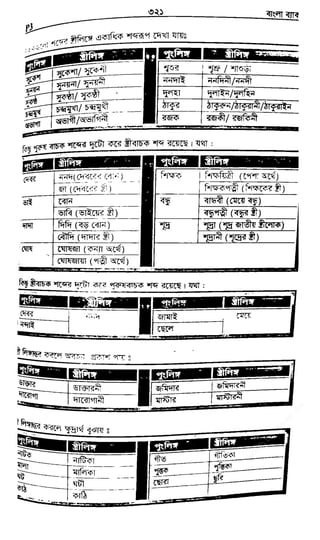 ৩২১
বাংলা ব্যাক
শব্দের স্ত্রীলিঙ্গে একাধিক শব্দরূপ দেখা যায়ঃ
পুংলিঙ্গ স্ত্রীলিঙ্গ পুংলিঙ্গ স্ত্রীলিঙ্গ
সুকেশ সুকেশা/ সুকেশী শ্বশুর শ্বশ্রূ / শাশুড়ী
সুনয়ন সুনয়না/ সুনয়নী ননদাই ননদিনী/ননদী
সুকণ্ঠ সুকণ্ঠা/ সুকণ্ঠী দুলহা দুলাইন/দুলহিন
চন্দ্রমুখ চন্দ্রমুখা/ চন্দ্রমুখী ঠাকুর ঠাকুরুন/ঠাকুরানী/ঠাকুরাইন
অভাগা অভাগী/অভাগিনী রজক রজকী/ রজকিনী
কিছু পুরুষ বাচক শব্দের দুটো করে স্ত্রীবাচক শব্দ রয়েছে। যথা :
পুংলিঙ্গ স্ত্রীলিঙ্গ পুংলিঙ্গ স্ত্রীলিঙ্গ
দেবর ননদ(দেবরের বোন) শিক্ষক শিক্ষয়িত্রী (পেশা অর্থে)
জা (দেবরের স্ত্রী) শিক্ষকপত্নী (শিক্ষকের স্ত্রী)
ভাই বোন বন্ধু বান্ধবী (মেয়ে বন্ধু)
ভাবি (ভাইয়ের স্ত্রী) বন্ধুপত্নী (বন্ধুর স্ত্রী)
দাদা দিদি (বড় বোন) শূদ্র শূদ্রা (শূদ্র জাতীয় স্ত্রীলোক)
বৌদি (দাদার স্ত্রী) শূদ্রানী (শূদ্রের স্ত্রী)
ঘোষ ঘোষজা (কন্যা অর্থে)
ঘোষজায়া (পত্নী অর্থে)
কিছু স্ত্রীবাচক শব্দের দুটো করে পুরুষবাচক শব্দ রয়েছে। যথা :
পুংলিঙ্গ স্ত্রীলিঙ্গ পুংলিঙ্গ স্ত্রীলিঙ্গ
দেবর ননদ জামাই মেয়ে
নন্দাই ছেলে
লিঙ্গান্তর করলে অবজ্ঞা প্রকাশ পায় ঃ
স্ত্রীলিঙ্গ পুংলিঙ্গ স্ত্রীলিঙ্গ
ডাক্তার ডাক্তারনী জমিদার জমিদারনী
দারোগা দারোগানী মাস্টার মাস্টারনী
লিঙ্গান্তর করলে ক্ষুদ্রার্থ বুঝায় ঃ
পুংলিঙ্গ স্ত্রীলিঙ্গ পুংলিঙ্গ স্ত্রীলিঙ্গ
নাটক নাটিকা গীত গীতিকা
মালা মালিকা পুস্তক পুস্তিকা
ঘট ঘটী ছোরা ছুরি
কাঠ কাঠি